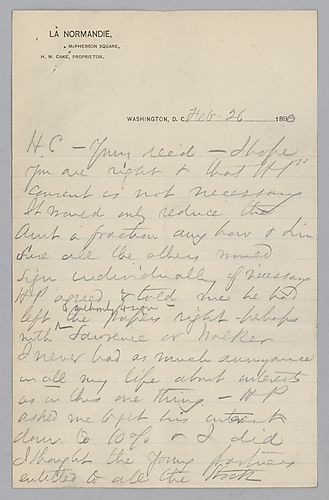 LA NORMANDIE,
McPHERSON SQUARE,
H. M. CAKE, PROPRIETOR.
WASHINGTON, D. C. Feb. 26 189
H.C - Yours recd - I hope
you are right & that HP's
consent is not necessary
It would only reduce the
amt a fraction any how & I'm
sure all the others would
sign individually if necessary
HP agreed & told me he had
left the papers right - perhaps
& authority to sign
with Lawrence or Walker
I never had as much annoyance
in all my life about interests
as in this one thing - HP
asked me to get his interest
down to 10% & I did
I thought the young partners
entitled to all the stock